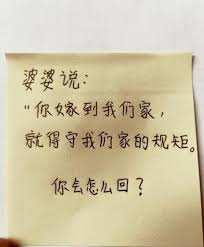 婆婆说：
“你嫁到我们家，
就得守我们家的规矩。
你会怎么回？